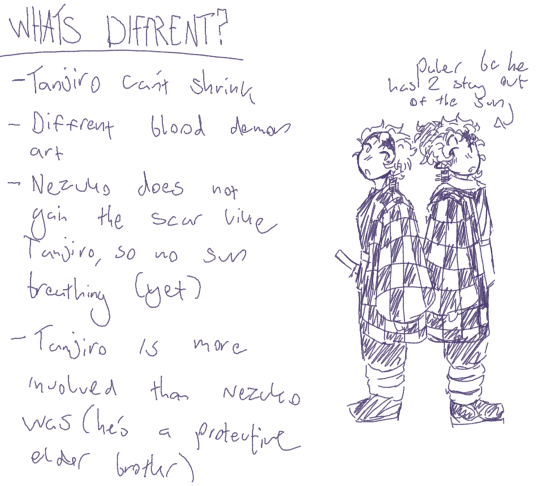 WHATS DIFFRENT?
- Tanjiro can't shrink
- Diffrent blood demon
art
- Nezuko does not
gain the scar like
Tanjiro, so no sun
breathing (yet)
- Tanjiro is more
involved than Nezuko
was (he's a protective
elder brother)
paler bc he
has 2 stay out
of the sun